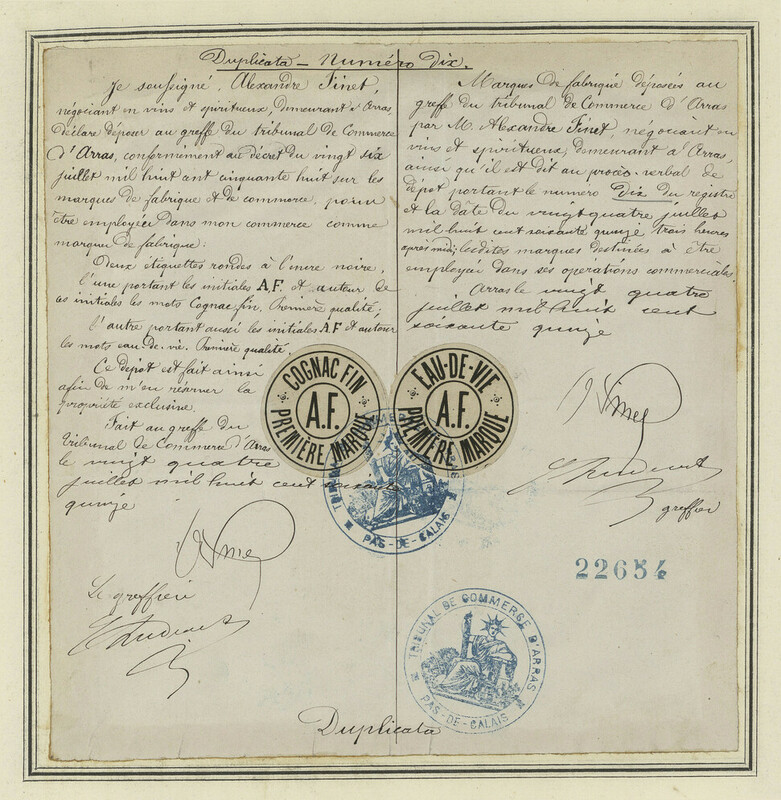 Duplicata — Numéro Dix.
Je soussigné, Alexandre Finet,
négociant en vins et spiritueux, demeurant à Arras,
déclare déposer au greffe du tribunal de Commerce
d'Arras, conformément au décret du vingt six
juillet mil huit cent cinquante huit sur les
marques de fabrique et de commerce, pour
être employées dans mon commerce comme
marque de fabrique:
Deux étiquettes rondes à l'encre noire,
l'une portant les initiales A.F. et autour de
ces initiales les mots Cognac fin, Première qualité;
l'autre portant aussi les initiales A F et autour
les mots eau-de-vie. Première qualité.
Ce dépot est fait ainsi
afin de m'en réserver la
propriété exclusive.
Fait au greffe du
tribunal de Commerce d'Arras
le vingt quatre
juillet mil huit cent soixante
quinze
Le greffier
Marques de fabrique déposées au
greffe du tribunal de Commerce d'Arras
par M. Alexandre Finet, négociant en
vins et spiritueux, demeurant à Arras,
ainsi qu'il est dit au procès-verbal de
dépot portant le numéro dix du registre
et la date du vingt quatre juillet
mil huit cent soixante quinze trois heures
après midi; lesdites marques destinées à être
employées dans ses opérations commerciales.
Arras le vingt quatre
juillet mil huit cent
soixante quinze
greffier
COGNAC FIN
A.F.
PREMIÈRE MARQUE
EAU-DE-VIE
A.F.
PREMIÈRE MARQUE
PAS-DE-CALAIS
22654
TRIBUNAL DE COMMERCE D'ARRAS
PAS-DE-CALAIS
Duplicata